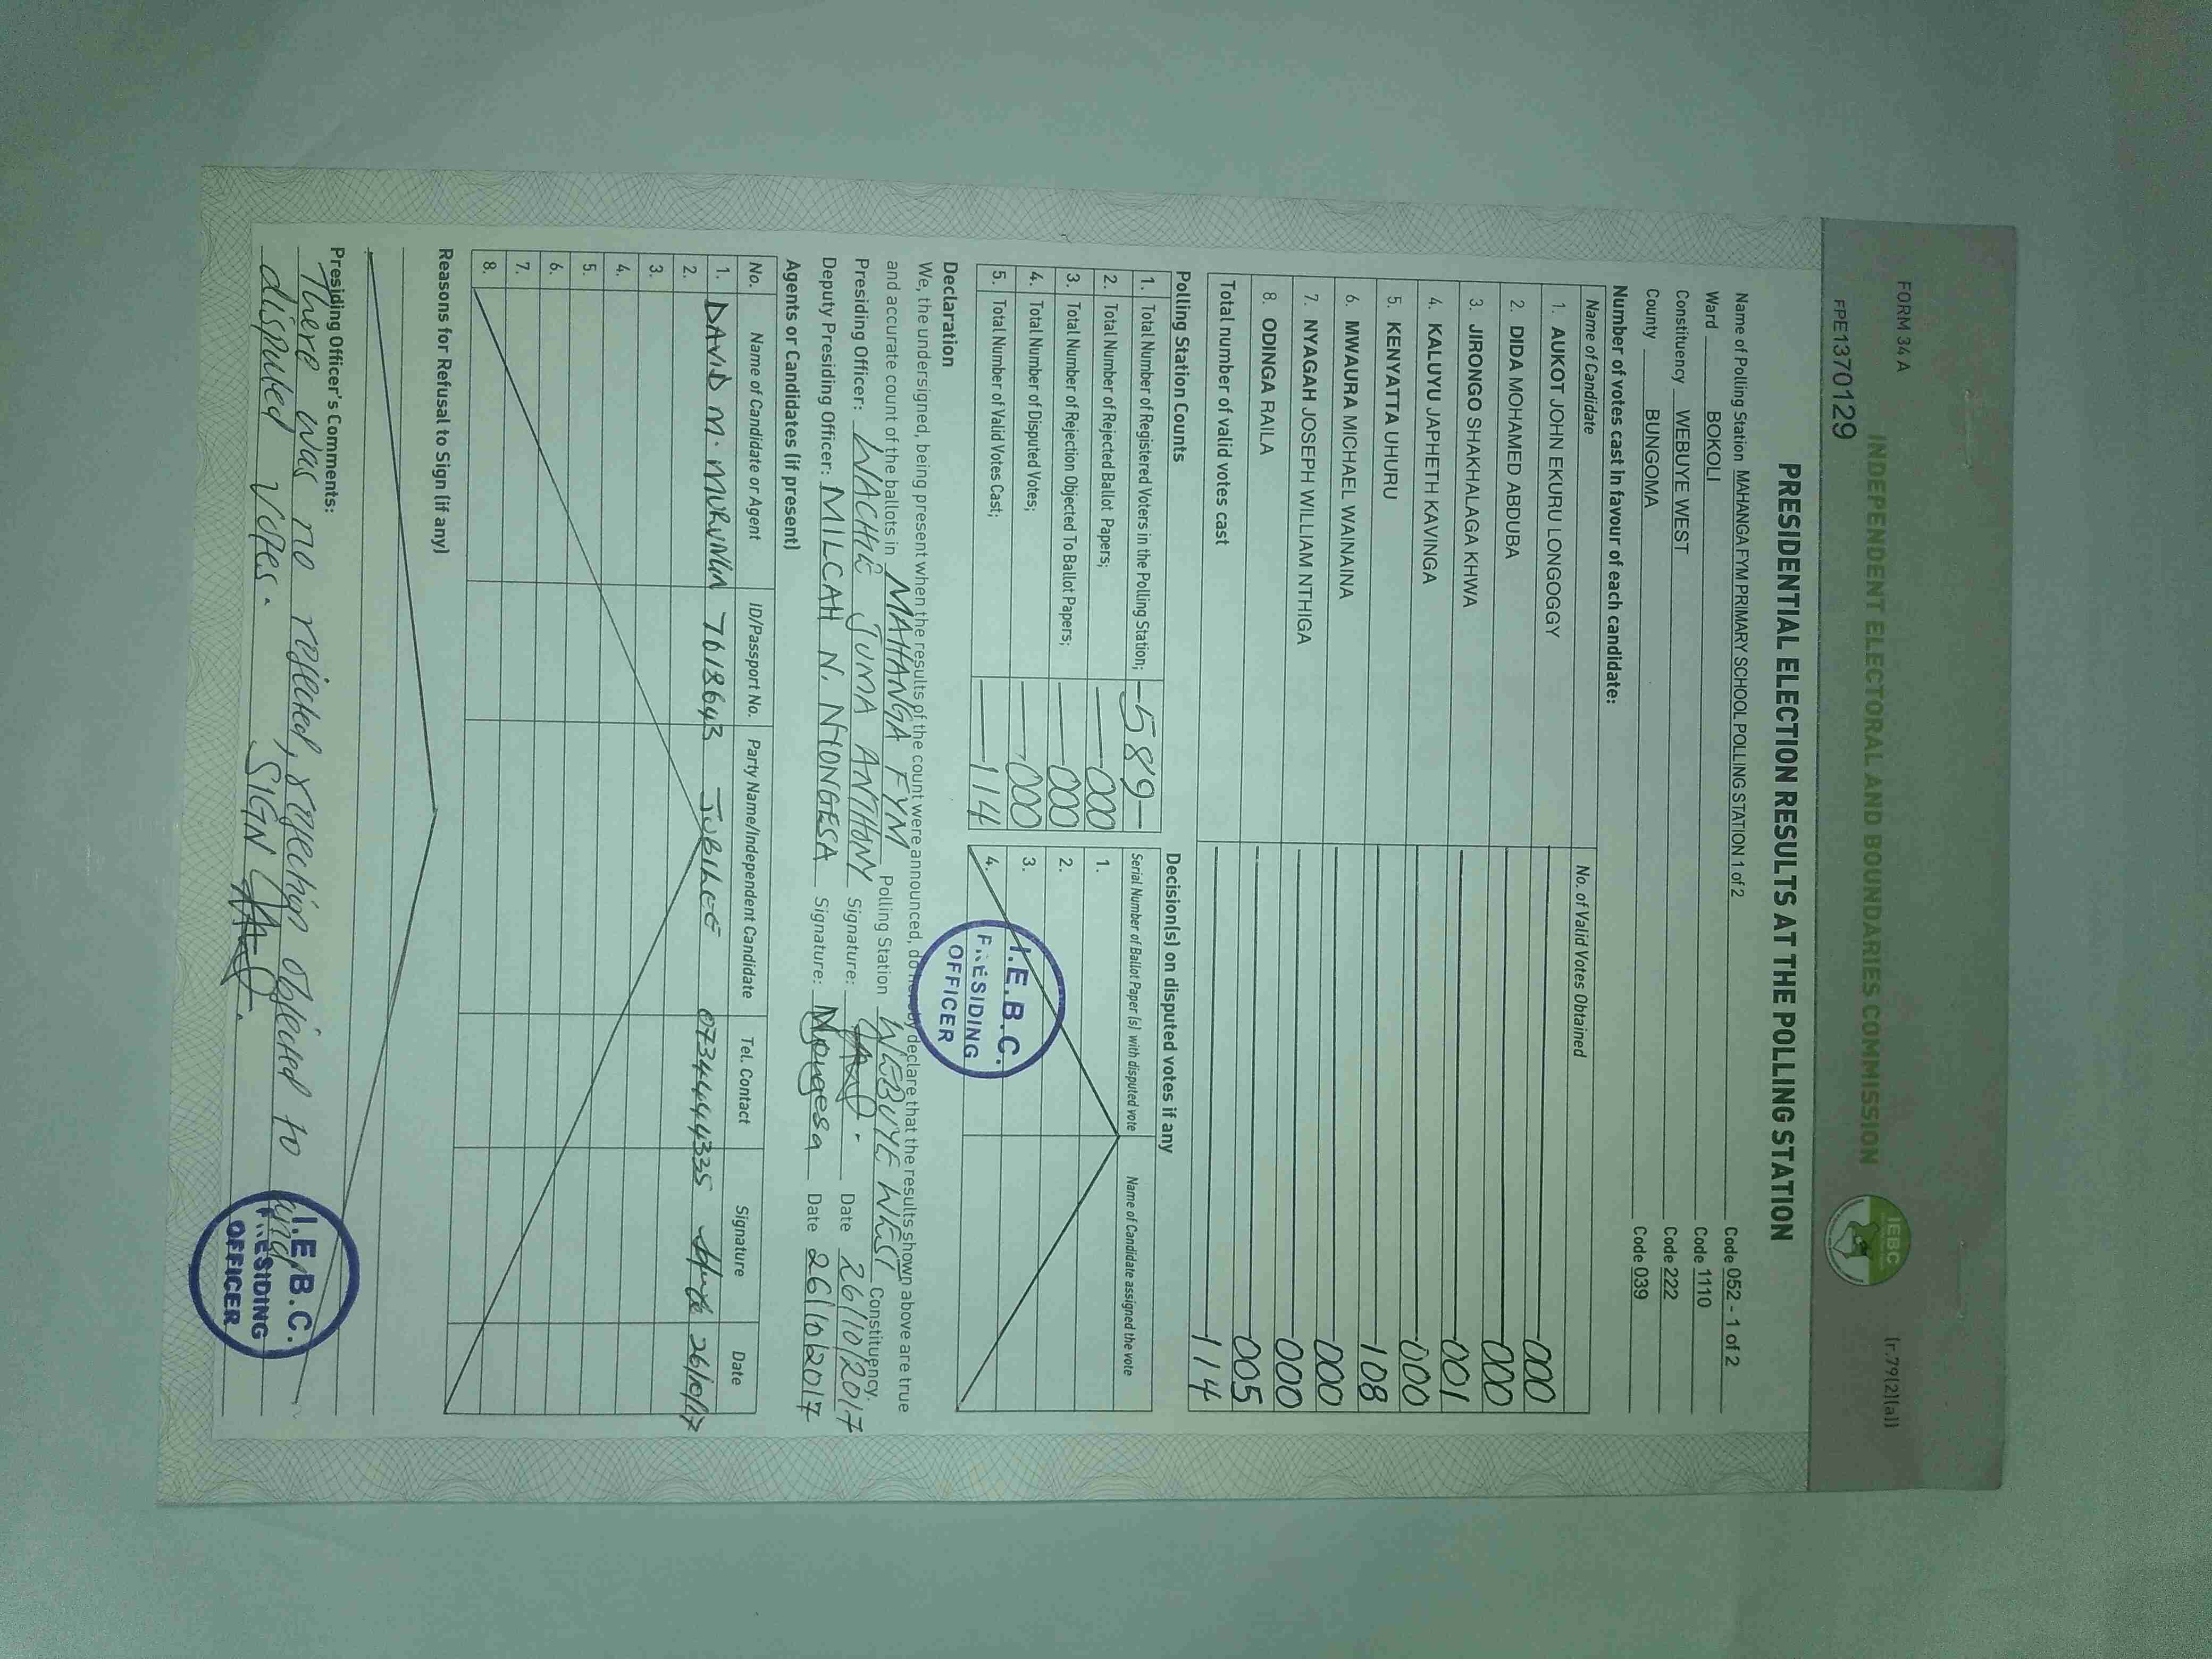 FORM 34 A
(r.79(2)(a))
INDEPENDENT ELECTORAL AND BOUNDARIES COMMISSION
IEBC
FPE1370129
PRESIDENTIAL ELECTION RESULTS AT THE POLLING STATION
Name of Polling Station MAHANGA FYM PRIMARY SCHOOL POLLING STATION 1 of 2 Code 052 - 1 of 2
Ward BOKOLI Code 1110
Constituency WEBUYE WEST Code 222
County BUNGOMA Code 039
Number of votes cast in favour of each candidate:
Name of Candidate No. of Valid Votes Obtained
1. AUKOT JOHN EKURU LONGOGGY 000
2. DIDA MOHAMED ABDUBA 000
3. JIRONGO SHAKHALAGA KHWA 001
4. KALUYU JAPHETH KAVINGA 000
5. KENYATTA UHURU 108
6. MWAURA MICHAEL WAINAINA 000
7. NYAGAH JOSEPH WILLIAM NTHIGA 000
8. ODINGA RAILA 005
Total number of valid votes cast 114
Polling Station Counts
1. Total Number of Registered Voters in the Polling Station; 589
2. Total Number of Rejected Ballot Papers; 000
3. Total Number of Rejection Objected To Ballot Papers; 000
4. Total Number of Disputed Votes; 000
5. Total Number of Valid Votes Cast; 114
Decision(s) on disputed votes if any
Serial Number of Ballot Paper (s) with disputed vote Name of Candidate assigned the vote
1.
2.
3.
4.
I.E.B.C.
PRESIDING
OFFICER
Declaration
We, the undersigned, being present when the results of the count were announced, do hereby declare that the results shown above are true
and accurate count of the ballots in MAHANGA FYM Polling Station WEBUYE WEST Constituency.
Presiding Officer: WACHIE JUMA ANTHONY Signature: Date 26/10/2017
Deputy Presiding Officer: MILCAH N. NYONGESA Signature: Nyongesa Date 26/10/2017
Agents or Candidates (if present)
No. Name of Candidate or Agent ID/Passport No. Party Name/Independent Candidate Tel. Contact Signature Date
1. DAVID M. 7618643 JUBILEE 0734444335 26/10/17
2.
3.
4.
5.
6.
7.
8.
Reasons for Refusal to Sign (if any)
Presiding Officer's Comments:
There was no rejected, rejection objected to and
disputed votes. SIGN
I.E.B.C.
PRESIDING
OFFICER